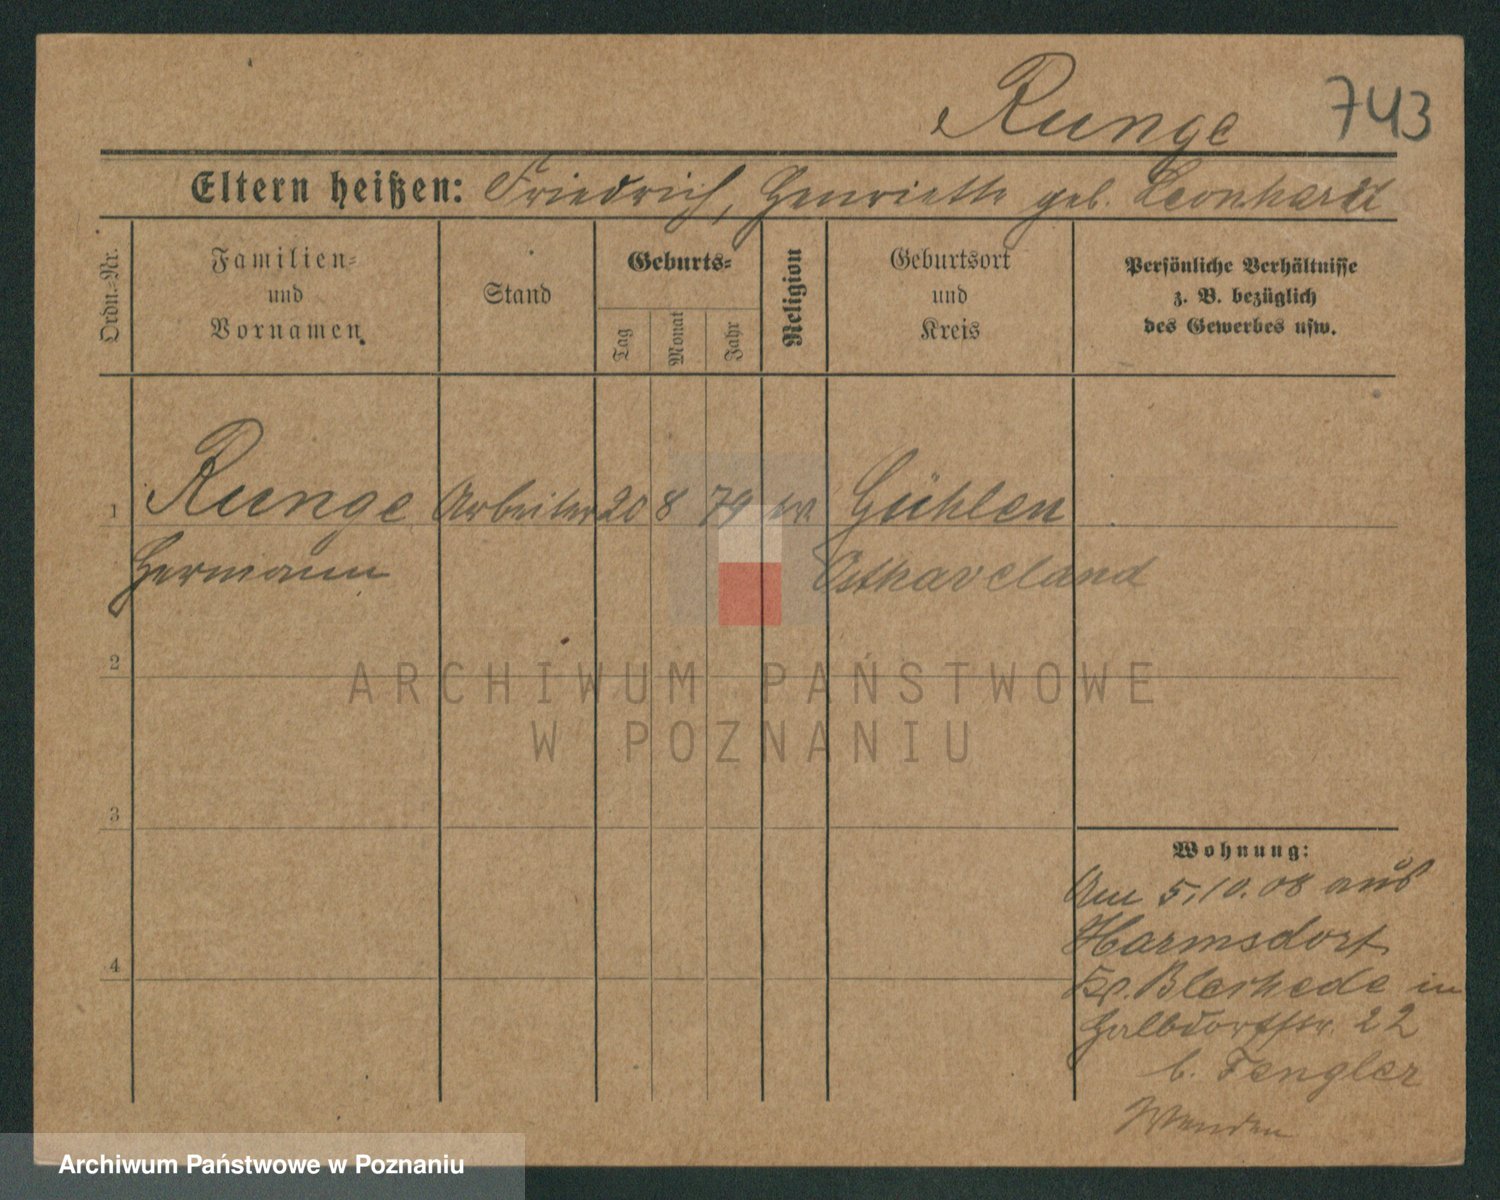 Runge 743
Eltern heißen: Friedrich, Henriette geb. Leonhardt
Ordn.-Nr.
Familien-
und
Vornamen.
Stand
Geburts-
Tag
Monat
Jahr
Religion
Geburtsort
und
Kreis
Persönliche Verhältnisse
z. B. bezüglich
des Gewerbes usw.
1 Runge Arbeiter 20 8 79 Gühlen
Hermann Osthaveland
2
3
4
Wohnung:
Am 5.10.08 aus
Harmsdorf
Kr. Bleckede in
Halbdorfstr. 22
b. Fengler
Wenden
ARCHIWUM PAŃSTWOWE
W POZNANIU
Archiwum Państwowe w Poznaniu